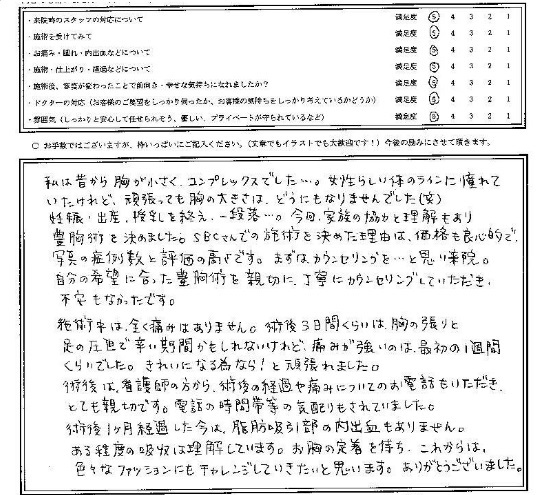 ・来院時のスタッフの対応について 満足度 5 4 3 2 1
・施術を受けてみて 満足度 5 4 3 2 1
・お痛み・腫れ・内出血などについて 満足度 5 4 3 2 1
・施術・仕上がり・経過などについて 満足度 5 4 3 2 1
・施術後、容姿が変わったことで前向き・幸せな気持ちになれましたか？ 満足度 5 4 3 2 1
・ドクターの対応（お客様のご要望をしっかり伺ったか、お客様の気持ちをしっかり考えているかどうか） 満足度 5 4 3 2 1
・雰囲気（しっかりと安心して任せられそう、優しい、プライベートが守られているなど） 満足度 5 4 3 2 1
○ お手数ではございますが、枠いっぱいにご記入ください。（文章でもイラストでも大歓迎です！）今後の励みにさせて頂きます。
私は昔から胸が小さく、コンプレックスでした…。女性らしい体のラインに憧れて
いたけれど、頑張っても胸の大きさは、どうにもなりませんでした(笑)
妊娠・出産、授乳を終え、一段落…。今回、家族の協力と理解もあり
豊胸術を決めました。SBCさんでの施術を決めた理由は、価格も良心的で、
写真の症例数と評価の高さです。まずはカウンセリングを…と思い来院。
自分の希望に合った豊胸術を親切に、丁寧にカウンセリングしていただき、
不安もなかったです。
施術中は、全く痛みはありません。術後3日間くらいは、胸の張りと
足の圧迫で辛い期間かもしれないけれど、痛みが強いのは、最初の1週間
くらいでした。きれいになる為なら！と頑張れました。
術後は、看護師の方から、術後の経過や痛みについてのお電話もいただき、
とても親切です。電話の時間帯等の気配りもされていました。
術後1ヶ月経過した今は、脂肪吸引部の内出血もありません。
ある程度の吸収は理解しています。お胸の定着を待ち、これからは、
色々なファッションにもチャレンジしていきたいと思います。ありがとうございました。